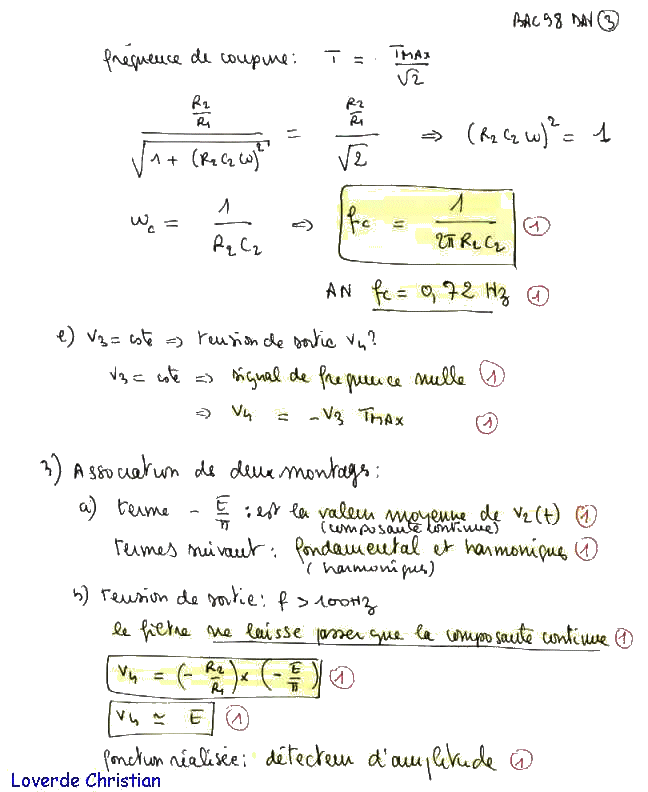 BAC 98 DAV ③
fréquence de coupure : T = TMAX/√2
(R2/R1) / √(1 + (R2C2ω)²) = (R2/R1) / √2 ⇒ (R2C2ω)² = 1
ωc = 1/(R2C2) ⇒ fc = 1/(2π R2C2) ①
AN fc = 0,72 Hz ①
e) V3 = cste ⇒ tension de sortie V4 ?
V3 = cste ⇒ signal de fréquence nulle ①
⇒ V4 = -V3 TMAX ①
3) Association de deux montages :
a) terme - E/π : est la valeur moyenne de v2(t) ①
(composante continue)
Termes suivant : fondamental et harmoniques ①
(harmoniques)
b) tension de sortie : f > 100Hz
le filtre ne laisse passer que la composante continue ①
V4 = (- R2/R1) × (- E/π) ①
V4 ≃ E ①
fonction réalisée : détecteur d'amplitude ①
Loverde Christian